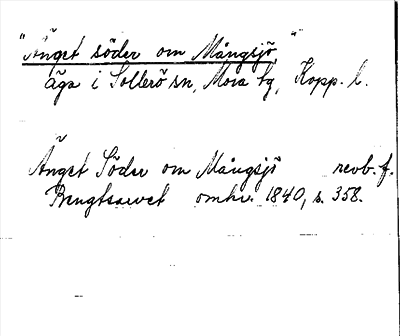 "Änget söder om Mångsjö,"
äga i Sollerö sn, Mora tg, Kopp. l.
Änget Söder om Mångsjö revb. f.
Bengtsarvet omkr. 1840, s. 358.